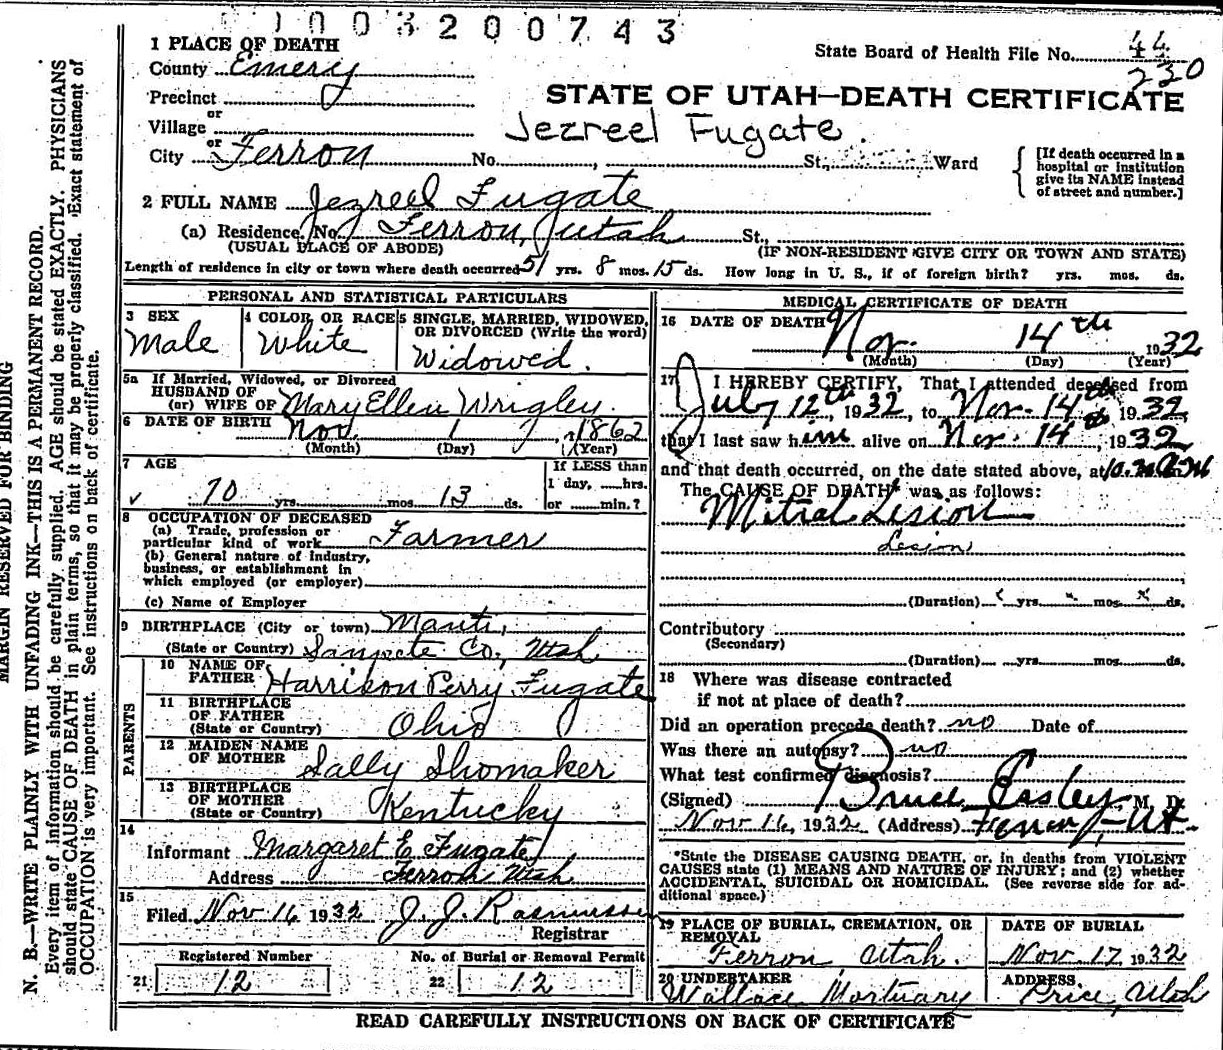 1003200743
1 PLACE OF DEATH
State Board of Health File No. 44
County Emery
230
Precinct
STATE OF UTAH—DEATH CERTIFICATE
or
Village
Jezreel Fugate.
or
City Ferron No. , St., Ward
[If death occurred in a hospital or institution give its NAME instead of street and number.]
2 FULL NAME Jezreel Fugate
(a) Residence. No. Ferron, Utah St.,
(USUAL PLACE OF ABODE) (IF NON-RESIDENT GIVE CITY OR TOWN AND STATE)
Length of residence in city or town where death occurred 51 yrs. 8 mos. 15 ds. How long in U. S., if of foreign birth? yrs. mos. ds.
PERSONAL AND STATISTICAL PARTICULARS
3 SEX
Male
4 COLOR OR RACE
White
5 SINGLE, MARRIED, WIDOWED,
OR DIVORCED (Write the word)
Widowed.
5a If Married, Widowed, or Divorced
HUSBAND OF
(or) WIFE OF Mary Ellen Wrigley
6 DATE OF BIRTH Nov. 1, 1862
(Month) (Day) (Year)
7 AGE
If LESS than
1 day, hrs.
70 yrs. mos. 13 ds. or min.?
8 OCCUPATION OF DECEASED
(a) Trade, profession or
particular kind of work Farmer
(b) General nature of industry,
business, or establishment in
which employed (or employer)
(c) Name of Employer
9 BIRTHPLACE (City or town) Manti,
(State or Country) Sanpete Co., Utah
PARENTS
10 NAME OF
FATHER Harrison Perry Fugate
11 BIRTHPLACE
OF FATHER
(State or Country) Ohio
12 MAIDEN NAME
OF MOTHER Sally Shomaker
13 BIRTHPLACE
OF MOTHER
(State or Country) Kentucky
14
Informant Margaret E Fugate
Address Ferron Utah
15
Filed Nov 16 1932 J. J. Rasmussen
Registrar
Registered Number
21 12
No. of Burial or Removal Permit
22 12
MEDICAL CERTIFICATE OF DEATH
16 DATE OF DEATH Nov. 14th 1932
(Month) (Day) (Year)
17 I HEREBY CERTIFY, That I attended deceased from
July 12th, 1932, to Nov. 14th 1932
that I last saw him alive on Nov. 14th, 1932
and that death occurred, on the date stated above, at
The CAUSE OF DEATH* was as follows:
Mitral Lision
Lesion
(Duration) yrs. mos. ds.
Contributory
(Secondary)
(Duration) yrs. mos. ds.
18 Where was disease contracted
if not at place of death?
Did an operation precede death? no Date of
Was there an autopsy? no
What test confirmed diagnosis?
(Signed) Bruce Easley, M. D.
Nov 16, 1932 (Address) Ferron, Ut.
*State the DISEASE CAUSING DEATH, or, in deaths from VIOLENT
CAUSES state (1) MEANS AND NATURE OF INJURY; and (2) whether
ACCIDENTAL, SUICIDAL OR HOMICIDAL. (See reverse side for ad-
ditional space.)
19 PLACE OF BURIAL, CREMATION, OR
REMOVAL
Ferron Utah.
DATE OF BURIAL
Nov. 17, 1932
20 UNDERTAKER
Wallace Mortuary
ADDRESS
Price, Utah
READ CAREFULLY INSTRUCTIONS ON BACK OF CERTIFICATE
MARGIN RESERVED FOR BINDING
N. B.—WRITE PLAINLY WITH UNFADING INK—THIS IS A PERMANENT RECORD.
Every item of information should be carefully supplied. AGE should be stated EXACTLY. PHYSICIANS
should state CAUSE OF DEATH in plain terms, so that it may be properly classified. Exact statement of
OCCUPATION is very important. See instructions on back of certificate.